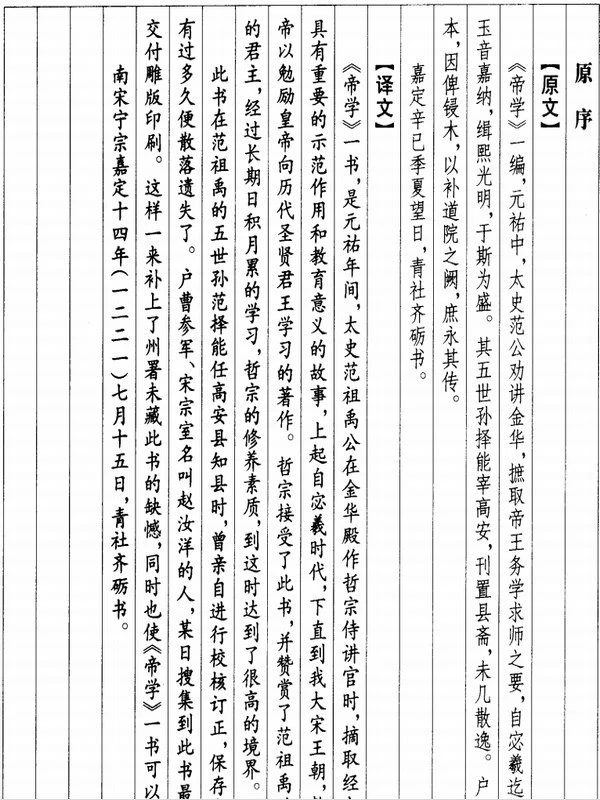 原序
【原文】
《帝学》一编，元祐中，太史范公劝讲金华，摭取帝王务学求师之要，自宓羲迄
玉音嘉纳，缉熙光明，于斯为盛。其五世孙择能宰高安，刊置县斋，未几散逸。户
本，因俾锓木，以补道院之阙，庶永其传。
嘉定辛巳季夏望日，青社齐砺书。
【译文】
《帝学》一书，是元祐年间，太史范祖禹公在金华殿作哲宗侍讲官时，摘取经
具有重要的示范作用和教育意义的故事，上起自宓羲时代，下直到我大宋王朝，
帝以勉励皇帝向历代圣贤君王学习的著作。哲宗接受了此书，并赞赏了范祖禹
的君主，经过长期日积月累的学习，哲宗的修养素质，到这时达到了很高的境界。
此书在范祖禹的五世孙范择能任高安县知县时，曾亲自进行校核订正，保存
有过多久便散落遗失了。户曹参军、宋宗室名叫赵汝洋的人，某日搜集到此书最
交付雕版印刷。这样一来补上了州署未藏此书的缺憾，同时也使《帝学》一书可以
南宋宁宗嘉定十四年(一二二一)七月十五日，青社齐砺书。